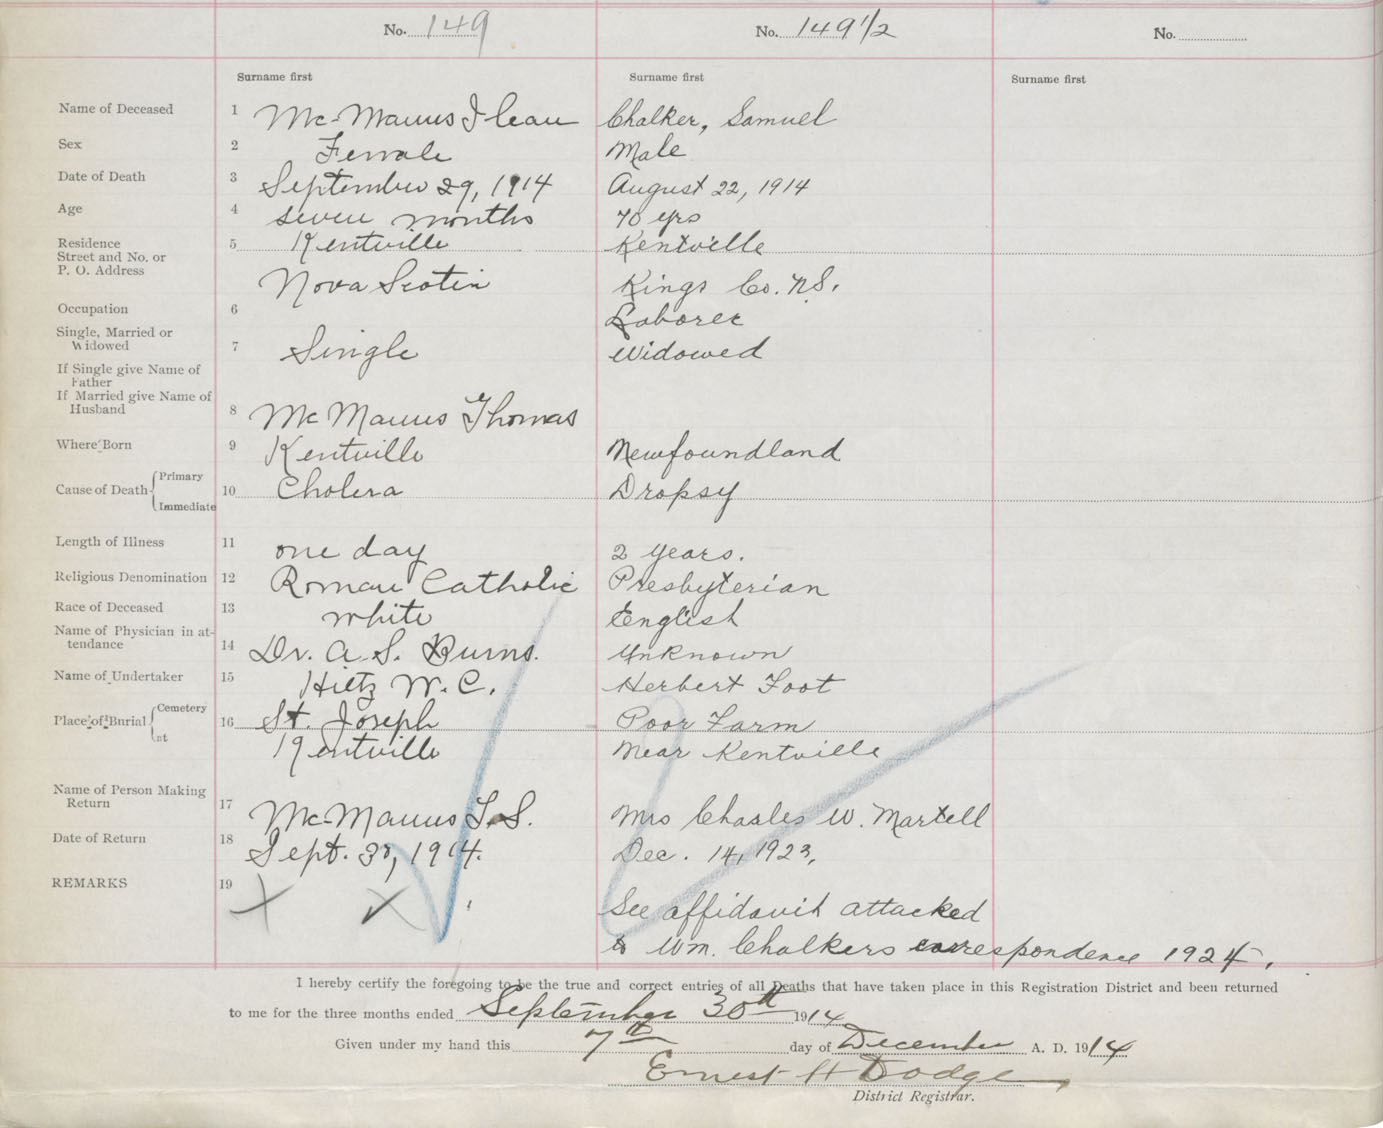 No. 149 No. 149 1/2 No.
Surname first Surname first Surname first
Name of Deceased 1 Mc Manus Ilean Chalker, Samuel
Sex 2 Female Male
Date of Death 3 September 29, 1914 August 22, 1914
Age 4 seven months 70 yrs
Residence 5 Kentville Kentville
Street and No. or
P. O. Address Nova Scotia Kings Co. N.S.
Occupation 6 Laborer
Single, Married or
Widowed 7 Single Widowed
If Single give Name of
Father
If Married give Name of
Husband 8 Mc Manus Thomas
Where Born 9 Kentville Newfoundland
Cause of Death Primary
10 Cholera Dropsy
Immediate
Length of Illness 11 one day 2 years.
Religious Denomination 12 Roman Catholic Presbyterian
Race of Deceased 13 white English
Name of Physician in at-
tendance 14 Dr. A. S. Burns. Unknown
Name of Undertaker 15 Hiltz W. C. Herbert Foot
Place of Burial Cemetery
16 St. Joseph Poor Farm
nt
Kentville Near Kentville
Name of Person Making
Return 17 Mc Manus T. S. Mrs Charles W. Martell
Date of Return 18 Sept. 30, 1914. Dec. 14, 1923.
REMARKS 19
See affidavit attacked
to Wm. Chalkers correspondence 1924.
I hereby certify the foregoing to be the true and correct entries of all Deaths that have taken place in this Registration District and been returned
to me for the three months ended September 30th 1914
Given under my hand this 7th day of December A. D. 1914
Ernest H Dodge
District Registrar.